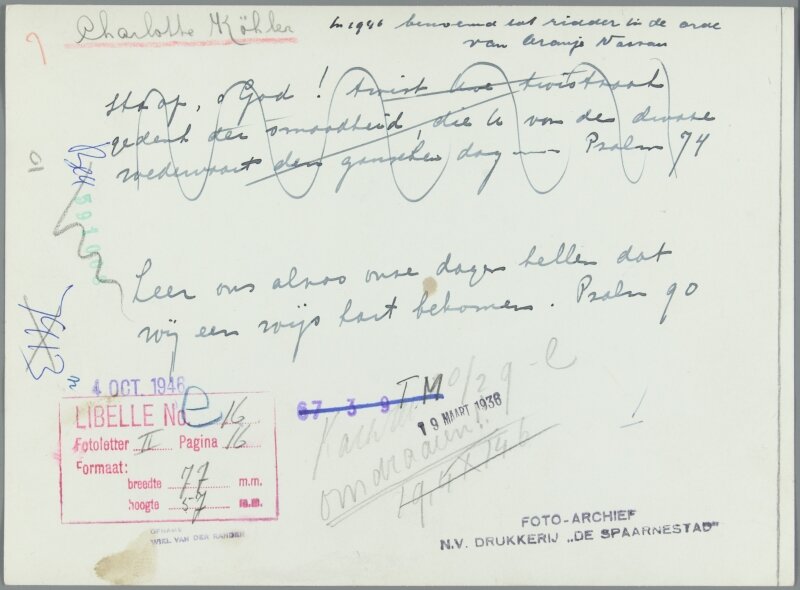 Charlotte Köhler
In 1946 benoemd tot ridder in de orde
van Oranje Nassau
Sta op, o God! twist Uw twistzaak
gedenk der smaadheid, die U van de dwaze
wedervaart den ganschen dag — Psalm 74
01
59100
Leer ons alzoo onze dagen tellen dat
wij een wijs hart bekomen. Psalm 90
7613
4 OCT. 1946
LIBELLE No. e 16
Fotoletter II Pagina 16
Formaat:
breedte 77 m.m.
hoogte 57 m.m.
67 3 9 I M
19 MAART 1938
omdraaien!!
OPNAME
WIEL VAN DER RANDEN
FOTO-ARCHIEF
N.V. DRUKKERIJ „DE SPAARNESTAD"